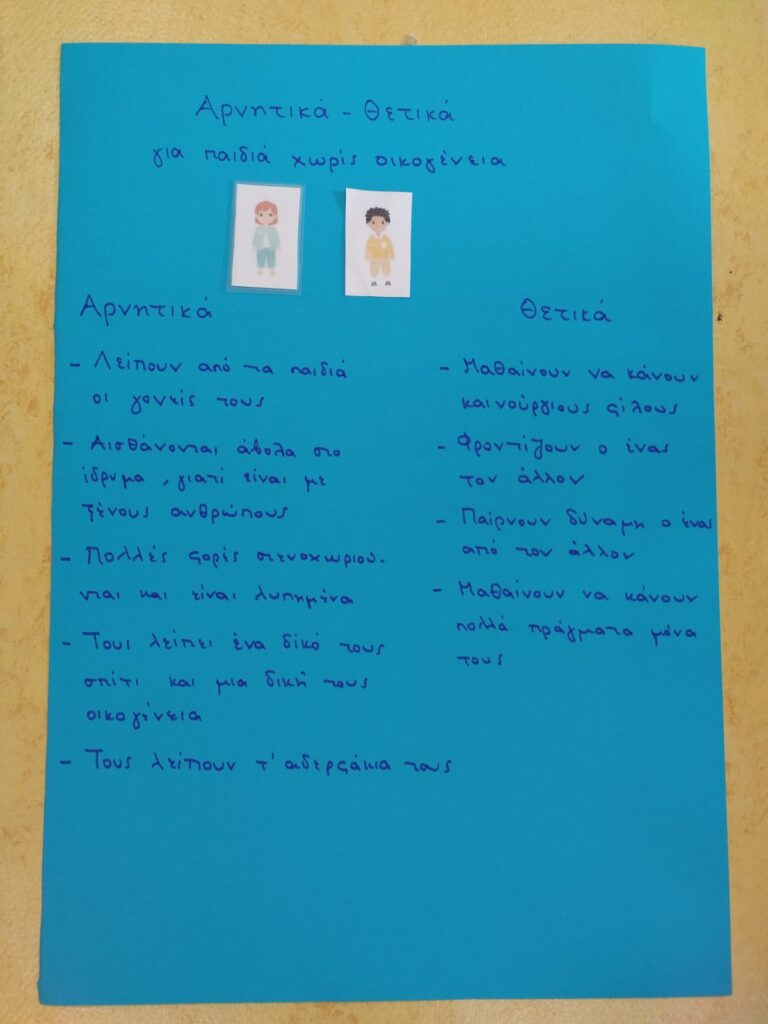 Αρνητικά - Θετικά
για παιδιά χωρίς οικογένεια
Αρνητικά
- Λείπουν από τα παιδιά
οι γονείς τους
- Αισθάνονται άβολα στο
ίδρυμα, γιατί είναι με
ξένους ανθρώπους
- Πολλές φορές στενοχωριού-
νται και είναι λυπημένα
- Τους λείπει ένα δικό τους
σπίτι και μια δική τους
οικογένεια
- Τους λείπουν τ' αδερφάκια τους
Θετικά
- Μαθαίνουν να κάνουν
καινούργιους φίλους
- Φροντίζουν ο ένας
τον άλλον
- Παίρνουν δύναμη ο ένας
από τον άλλον
- Μαθαίνουν να κάνουν
πολλά πράγματα μόνα
τους